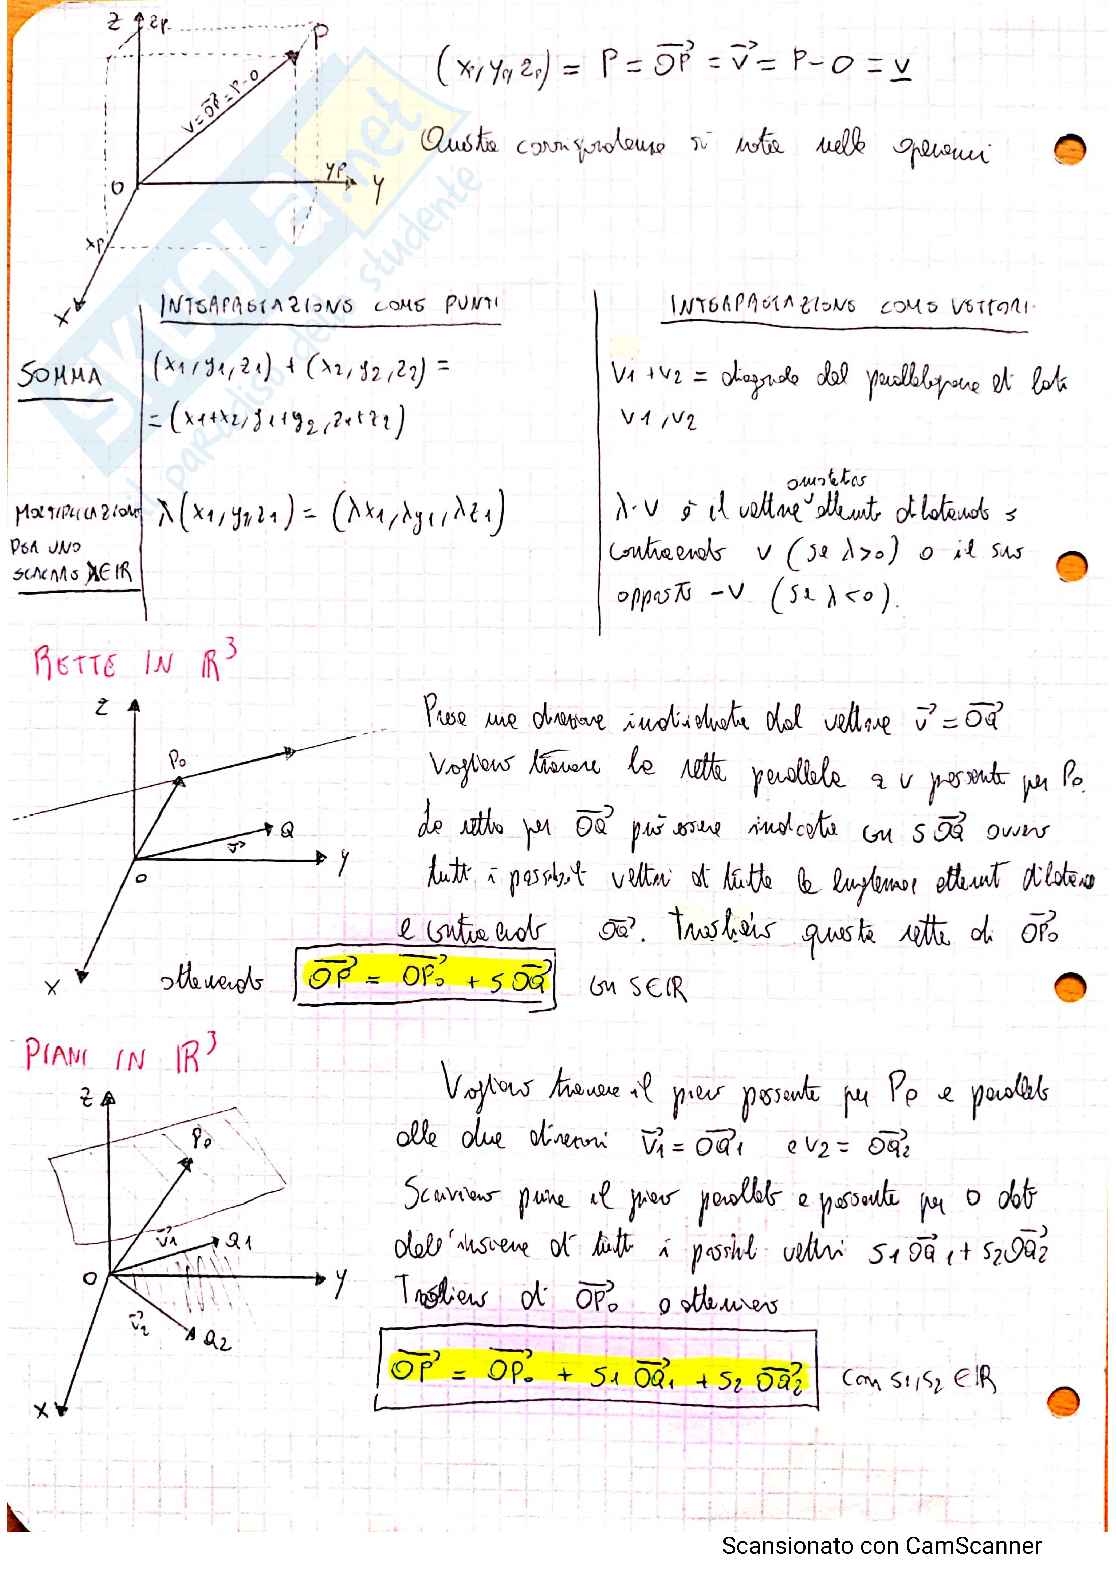 Z zp
P
V=OP=P-O
O
yp
Y
xp
X
(xp, yp, zp) = P = OP = v = P - O = v
Questa corrispondenza si nota nelle operazioni
INTERPRETAZIONE COME PUNTI
INTERPRETAZIONE COME VETTORI
SOMMA
(x1, y1, z1) + (x2, y2, z2) =
= (x1+x2, y1+y2, z1+z2)
V1 + V2 = diagonale del parallelogramma di lati
V1, V2
MOLTIPLICAZIONE
PER UNO
SCALARE λ∈IR
λ(x1, y1, z1) = (λx1, λy1, λz1)
λ·V è il vettore ottenuto dilatando o
contraendo V (se λ>0) o il suo
opposto -V (se λ<0).
RETTE IN IR³
Z
P0
Q
v
Y
O
X
Presa una direzione individuata dal vettore v = OQ
Vogliamo trovare la retta parallela a v passante per P0.
La retta per OQ può essere indicata con s OQ ovvero
tutti i possibili vettori di tutte le lunghezze ottenuti dilatando
e contraendo OQ. Trasliamo questa retta di OP0
ottenendo OP = OP0 + s OQ con s∈IR
PIANI IN IR³
Z
P0
v1
Q1
O
Y
v2
Q2
X
Vogliamo trovare il piano passante per P0 e parallelo
alle due direzioni v1 = OQ1 e v2 = OQ2
Scriviamo prima il piano parallelo e passante per O dato
dall'insieme di tutti i possibili vettori s1 OQ1 + s2 OQ2
Trasliamo di OP0 e otteniamo
OP = OP0 + s1 OQ1 + s2 OQ2 con s1, s2 ∈ IR
SKUOLA.net
il paradiso dello studente
Scansionato con CamScanner